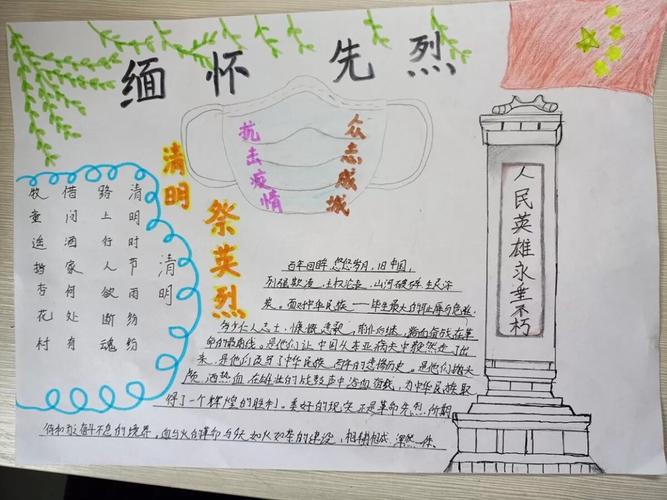 缅怀先烈
抗击疫情
众志成城
清明
祭英烈
清明
清明时节雨纷纷
路上行人欲断魂
借问酒家何处有
牧童遥指杏花村
人民英雄永垂不朽
百年回眸 悠悠岁月,旧中国,
列强欺凌,主权沦丧,山河破碎,生灵涂
炭。面对中华民族一一毕生最大的耻辱与危难,
多少仁人志士,慷慨悲歌,前仆后继,在革
命的最前线。是他们让中国从东亚病夫中毅然走了出
来,是他们改写了中华民族 百年的悲惨历史。是他们抛头
颅,洒热血 在雄壮的战鼓声中浴血奋战,为中华民族取
得了一个辉煌的胜利。美好的现实正是革命先烈 所期
奋斗不息的境界。血与火的革命与如火如荼的建设,相辅相成 浑然一体。